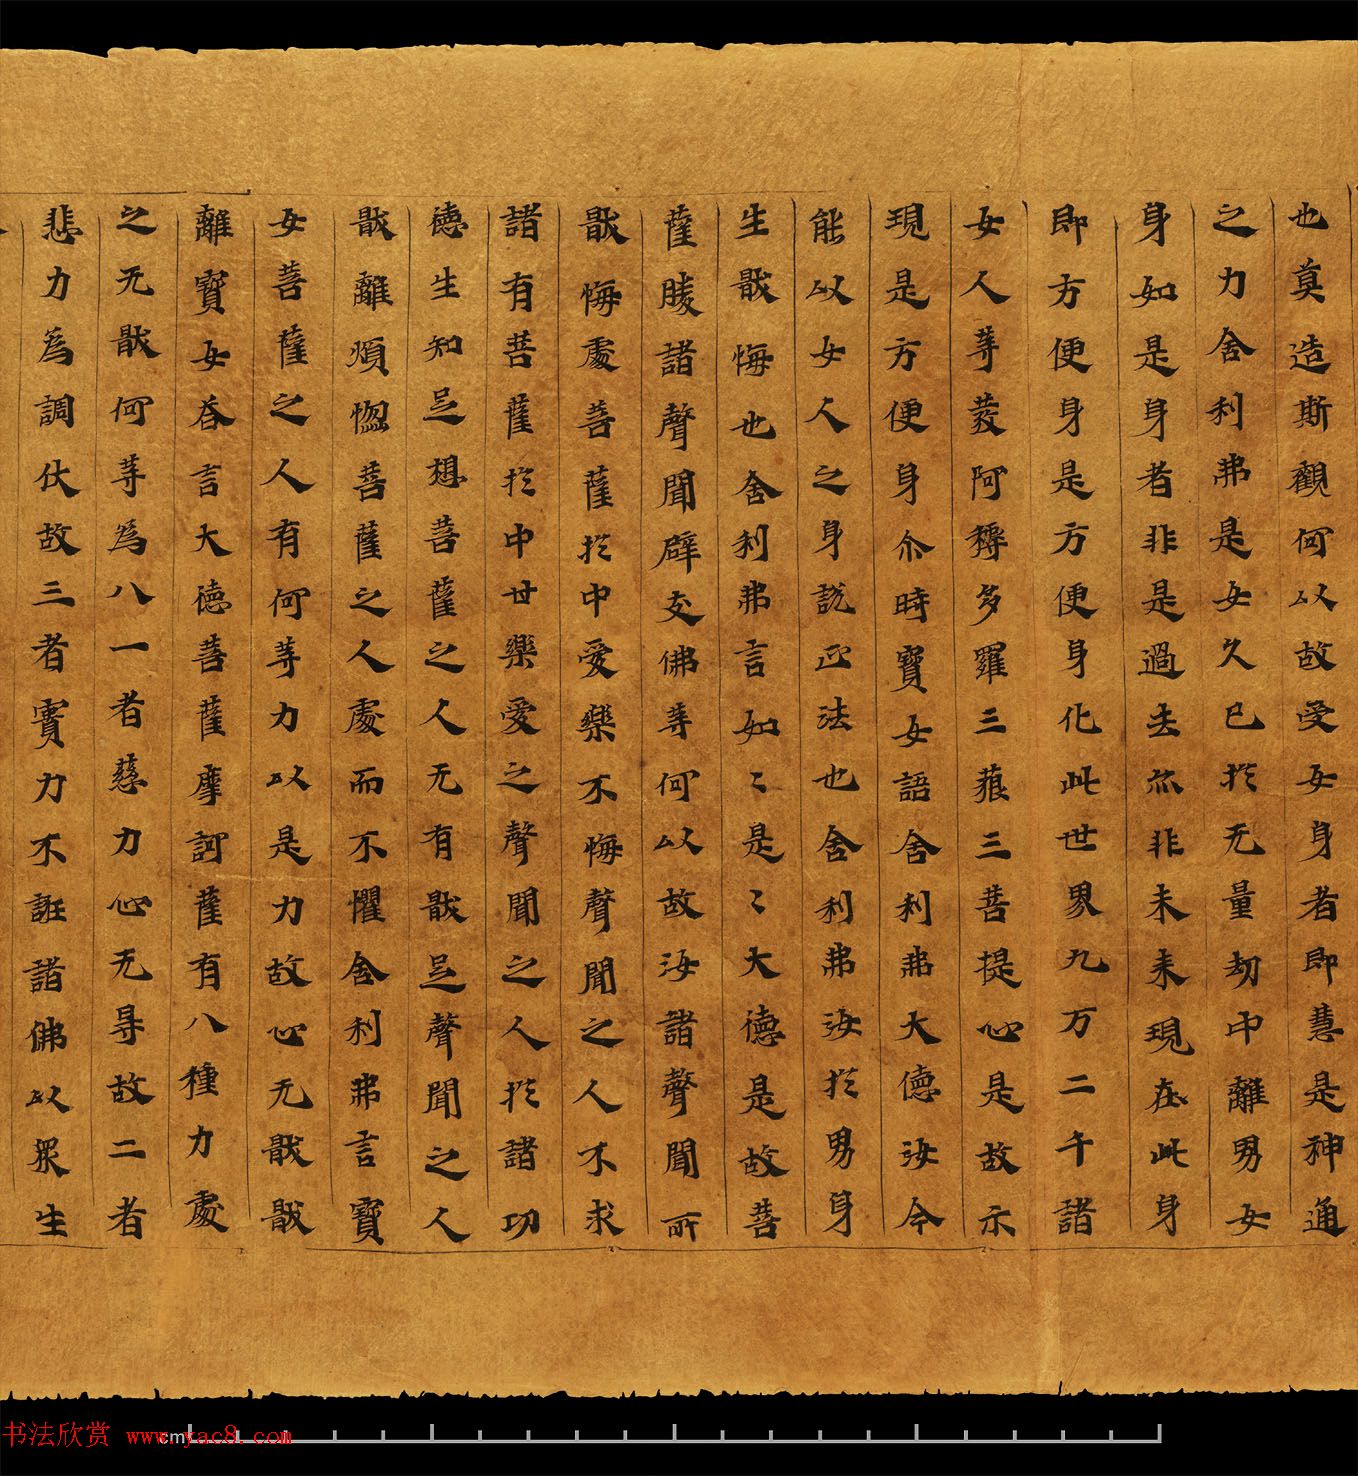 也莫造斯觀何以故受女身者即慧是神通
之力舍利弗是女久已於无量劫中離男女
身如是身者非是過去亦非未来現在此身
即方便身是方便身化此世界九万二千諸
女人等發阿耨多羅三藐三菩提心是故示
現是方便身尒時寶女語舍利弗大德汝今
能以女人之身說正法也舍利弗汝於男身
生猒悔也舍利弗言如〻是〻大德是故菩
薩勝諸聲聞辟支佛等何以故汝諸聲聞所
猒悔處菩薩於中愛樂不悔聲聞之人不求
諸有菩薩於中甘樂愛之聲聞之人於諸功
德生知足想菩薩之人无有猒足聲聞之人
猒離煩惱菩薩之人處而不懼舍利弗言寶
女菩薩之人有何等力以是力故心无猒猒
離寶女荅言大德菩薩摩訶薩有八種力處
之无猒何等為八一者慈力心无㝵故二者
悲力為調伏故三者實力不誑諸佛以眾生
书法欣赏 www.yac8.com
cm